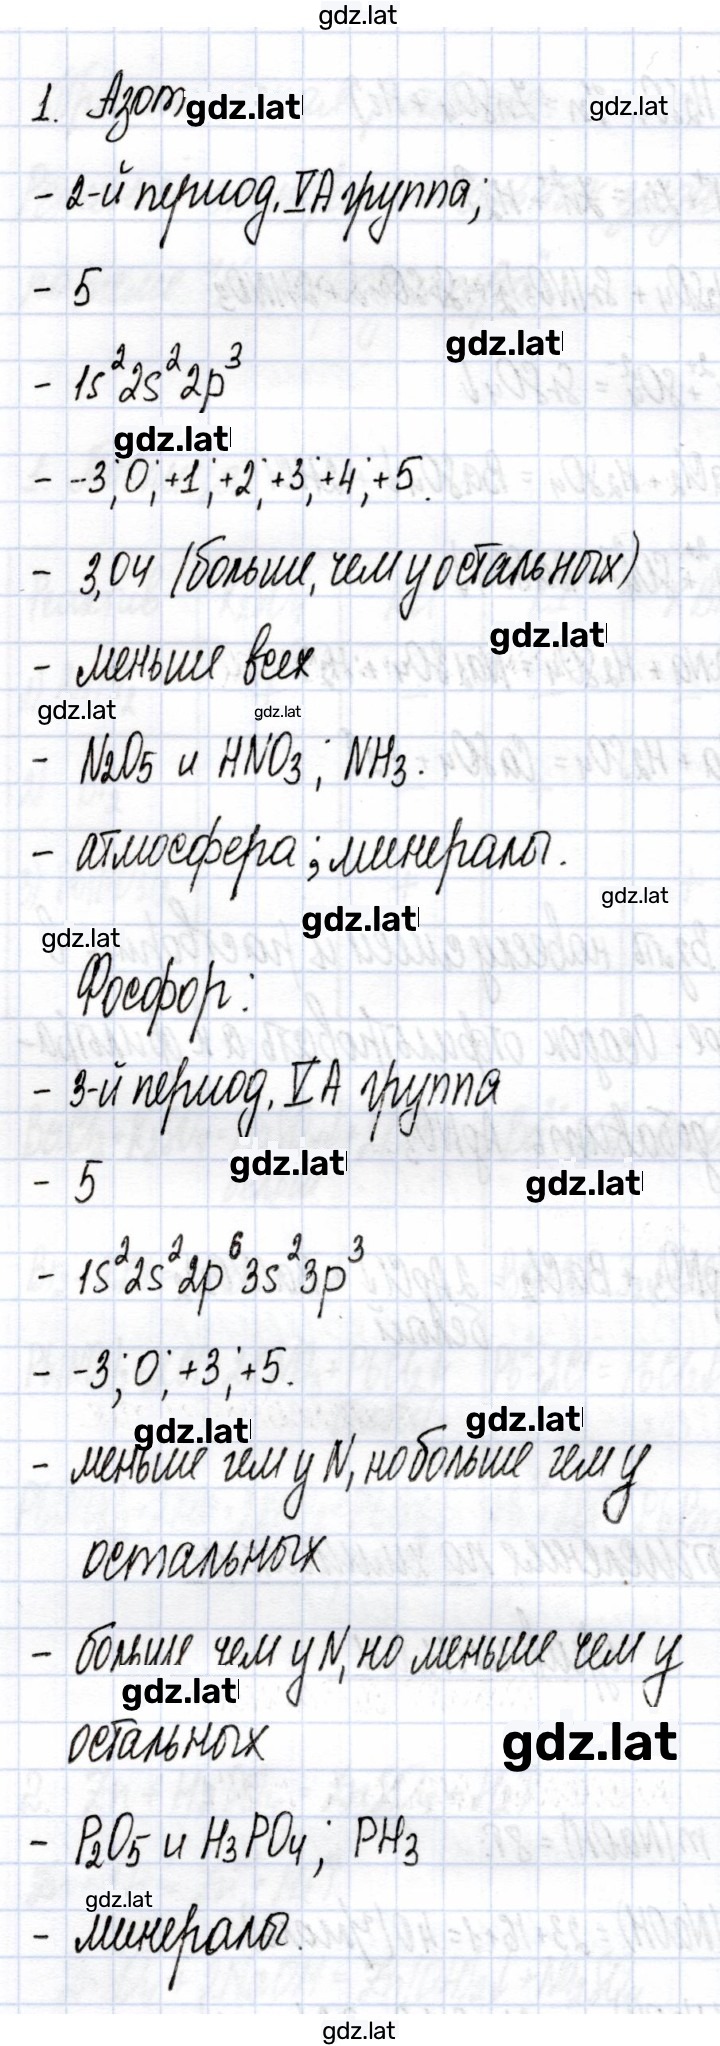 gdz.lat
1. Азот gdz.lat gdz.lat
- 2-й период, VA группа;
- 5
gdz.lat
- 1s²2s²2p³
gdz.lat
- -3; 0; +1; +2; +3; +4; +5.
- 3,04 (больше, чем у остальных)
gdz.lat
- меньше всех
gdz.lat gdz.lat
- N2O5 и HNO3; NH3.
- атмосфера; минералы.
gdz.lat
gdz.lat
gdz.lat
Фосфор:
- 3-й период, VA группа
gdz.lat
- 5 gdz.lat
- 1s²2s²2p⁶3s²3p³
- -3; 0; +3; +5.
gdz.lat gdz.lat
- меньше чем у N, но больше чем у
остальных
- больше чем у N, но меньше чем у
gdz.lat
остальных gdz.lat
- P2O5 и H3PO4; PH3
gdz.lat
- минералы.
gdz.lat